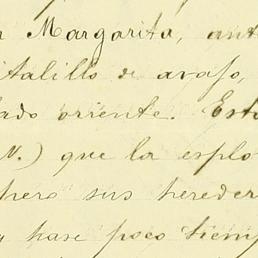 Margarita, ant
italillo de avajo,
ado oriente. Esta
N.) que la esplo
pero sus hereder
hase poco tiemp